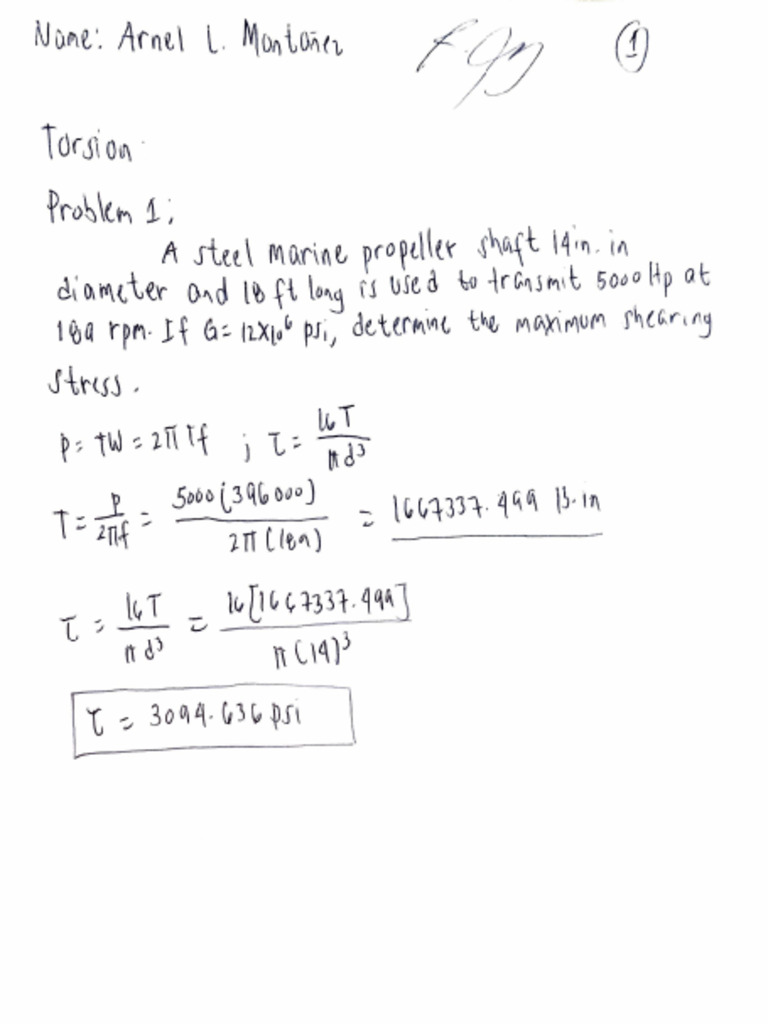 Name: Arnel L. Montañez
①
Torsion
Problem 1;
A steel marine propeller shaft 14in. in
diameter and 18 ft long is used to transmit 5000 Hp at
189 rpm. If G = 12x10⁶ psi, determine the maximum shearing
stress.
P = TW = 2πTf ; τ = 16T / πd³
T = P / 2πf = 5000(396000) / 2π(189) = 1667337.499 lb·in
τ = 16T / πd³ = 16[1667337.499] / π(14)³
τ = 3094.636 psi